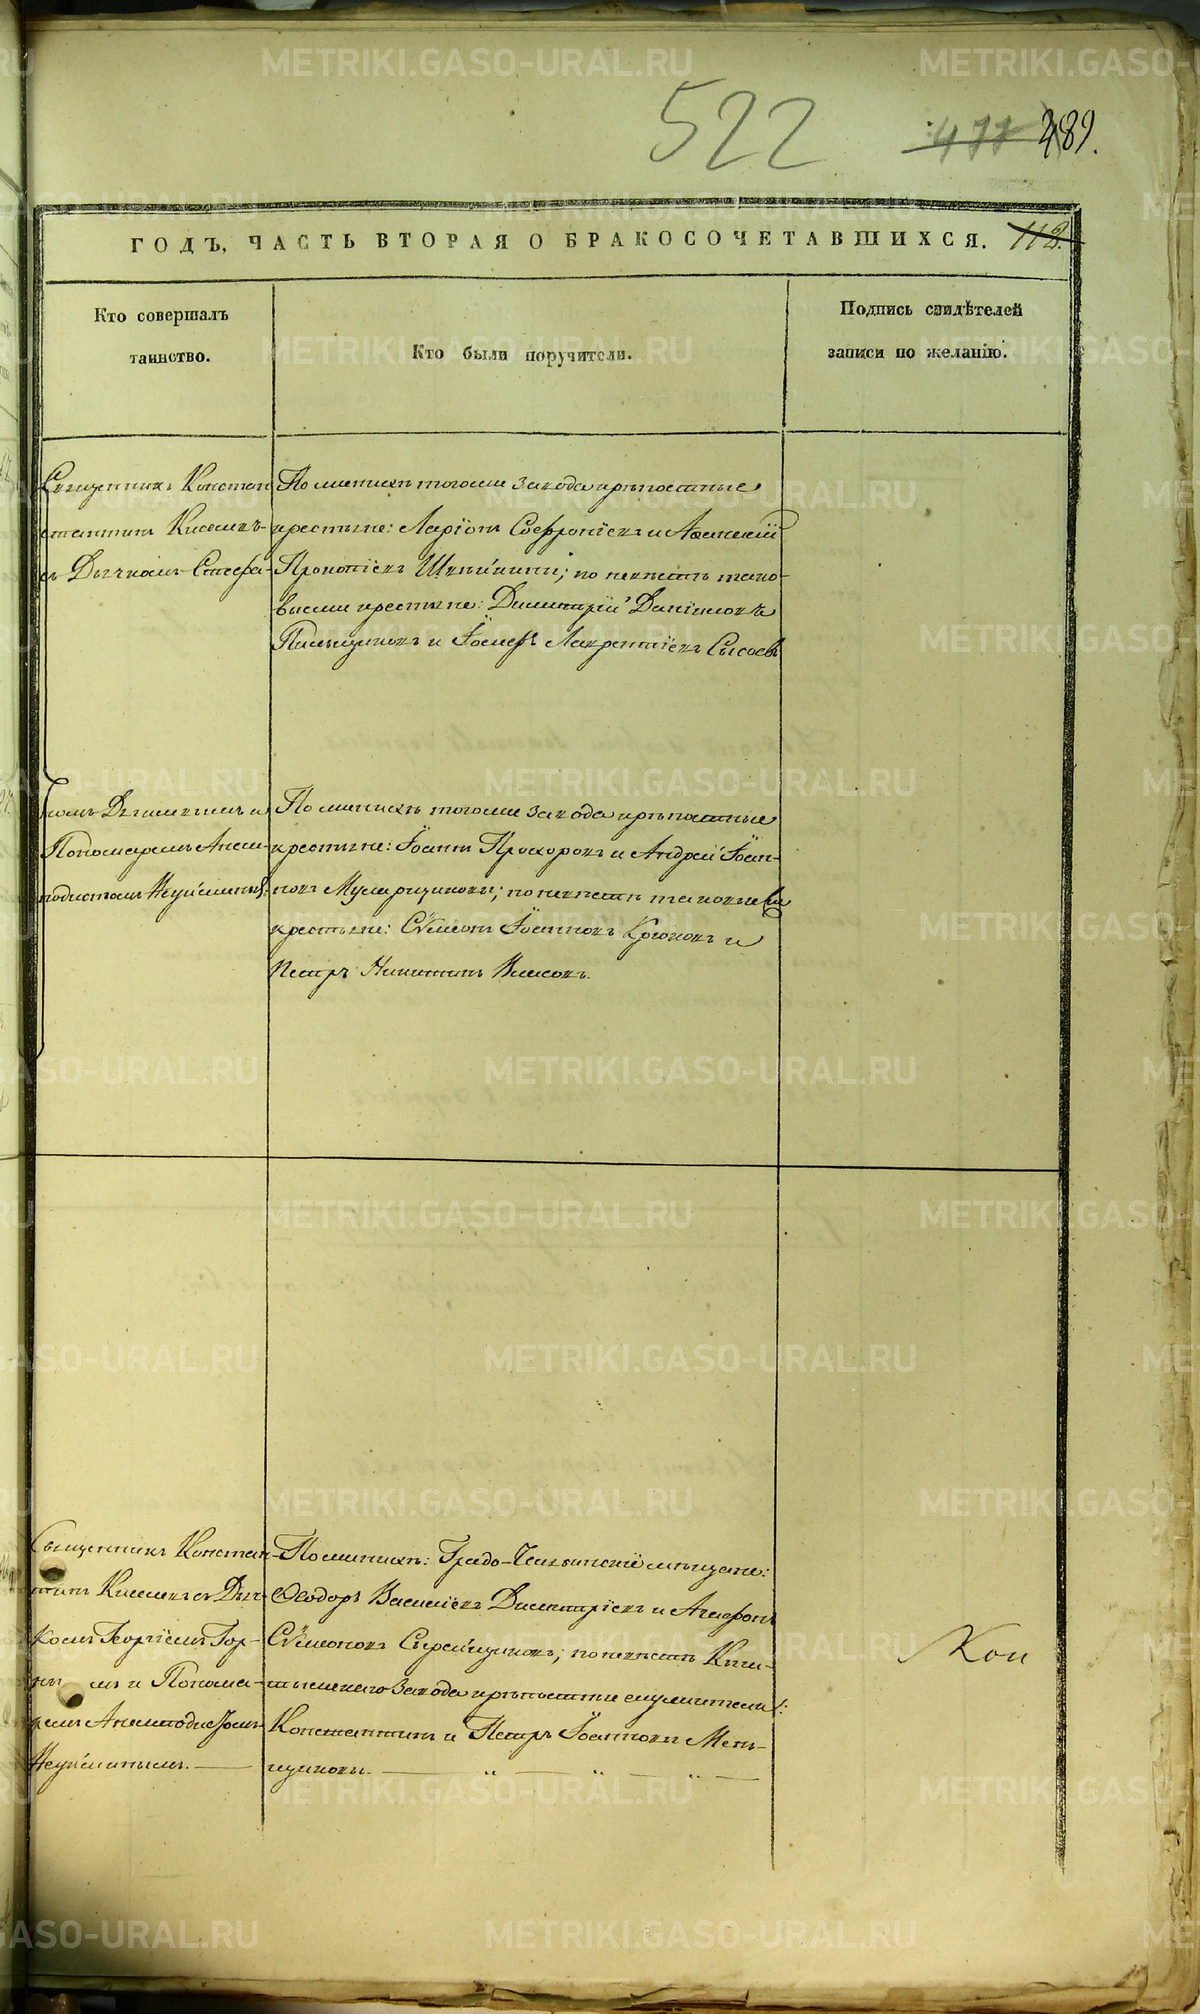 522
477
489.
ГОДЪ, ЧАСТЬ ВТОРАЯ О БРАКОСОЧЕТАВШИХСЯ. 112.
Кто совершалъ
таинство.
Кто были поручители.
Подпись свидѣтелей
записи по желанію.
Священникъ Констан
стантинъ Киселевъ
съ Дьячкомъ Стефа-
По женихѣ тогоже завода крѣпостные
крестьяне: Ларіонъ Софроніевъ и Афанасій
Прокопіевъ; по невѣстѣ тако-
выеже крестьяне: Димитрій Даніиловъ
Пильщиковъ и Іосифъ Лаврентіевъ Сысоевъ
номъ и
Пономаремъ Анем-
подистомъ Неуйминымъ
По женихѣ тогоже завода крѣпостные
крестьяне: Іоаннъ Прохоровъ и Андрей Іоан-
новъ; по невѣстѣ таковыеже
крестьяне: Сѵмеонъ Іоанновъ Крюковъ и
Петръ Никитинъ Власовъ.
Священникъ Констан-
тинъ Киселевъ съ Дьяч-
комъ Георгіемъ Гор-
и Понома-
ремъ Анемподистомъ
Неуйминымъ.
По женихѣ: Градо-Челябинскіе мѣщане:
Ѳеодоръ Василіевъ Димитріевъ и Агафонъ
Сѵмеоновъ; по невѣстѣ Кы-
штымскаго завода крѣпостные служители:
Константинъ и Петръ Іоанновы Мень-
щиковы.
Кон
METRIKI.GASO-URAL.RU